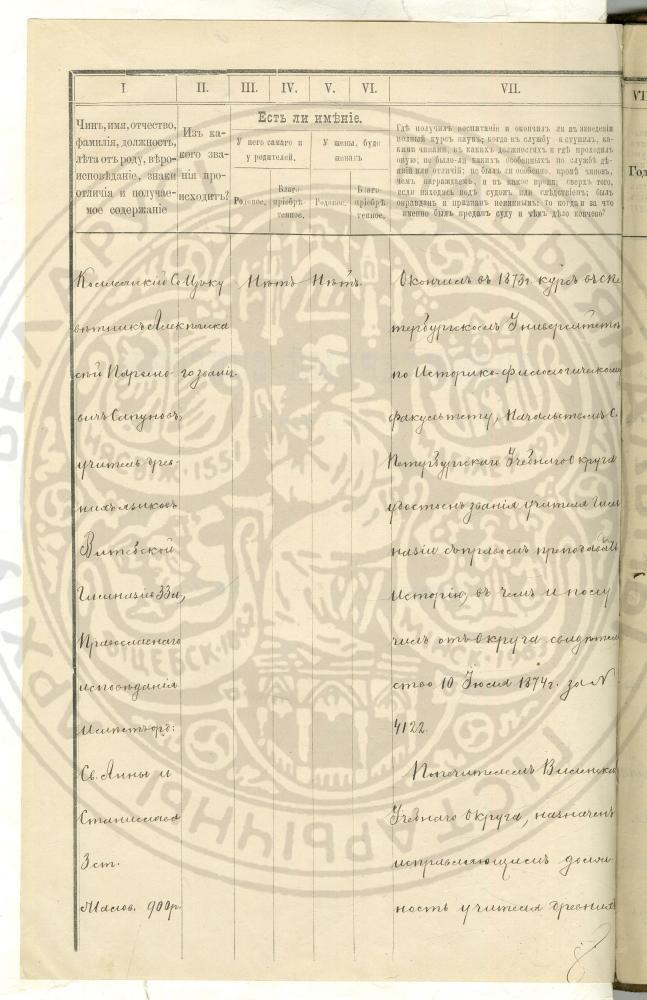 I.
II.
III.
IV.
V.
VI.
VII.
VII
Чинъ, имя, отчество, фамилія, должность, лѣта отъ роду, вѣроисповѣданіе, знаки отличія и получаемое содержаніе
Изъ какого званія происходитъ?
Есть ли имѣніе.
У него самаго и у родителей.
У жены, буде женатъ
Родовое.
Благопріобрѣтенное.
Родовое.
Благопріобрѣтенное.
Гдѣ получилъ воспитаніе и окончилъ ли въ заведеніи полный курсъ наукъ; когда въ службу вступилъ, какими чинами, въ какихъ должностяхъ и гдѣ проходилъ оную; не было-ли какихъ особенныхъ по службѣ дѣяній или отличій; не былъ ли особенно, кромѣ чиновъ, чѣмъ награждаемъ, и въ какое время; сверхъ того, если находясь подъ судомъ или слѣдствіемъ; былъ оправданъ и признанъ невиннымъ: то когда и за что именно былъ преданъ суду и чѣмъ дѣло кончено?
Год
Коллежскій Со
вѣтникъ Алек
сѣй Парѳено
вичъ Сапуновъ,
учитель древ
нихъ языковъ
Витебской
Гимназіи 33 л,
Православнаго
исповѣданія
Св. Анны и
Станислава
3 ст.
Жалов. 900 р
Нѣтъ
Нѣтъ
Окончилъ въ 1873 г. курсъ въ С Пе
тербургскомъ Университетѣ
по Историко-филологическому
факультету, Начальствомъ С.
Петербургскаго Учебнаго Округа
удостоенъ званія учителя Гим
назіи съ правомъ преподавать
Исторію, въ чемъ и полу
чилъ отъ Округа свидѣтель
ство 10 Іюля 1874 г. за №
4122.
Попечителемъ Виленскаго
Учебнаго Округа, назначенъ
исправляющимъ долж
ность учителя древнихъ